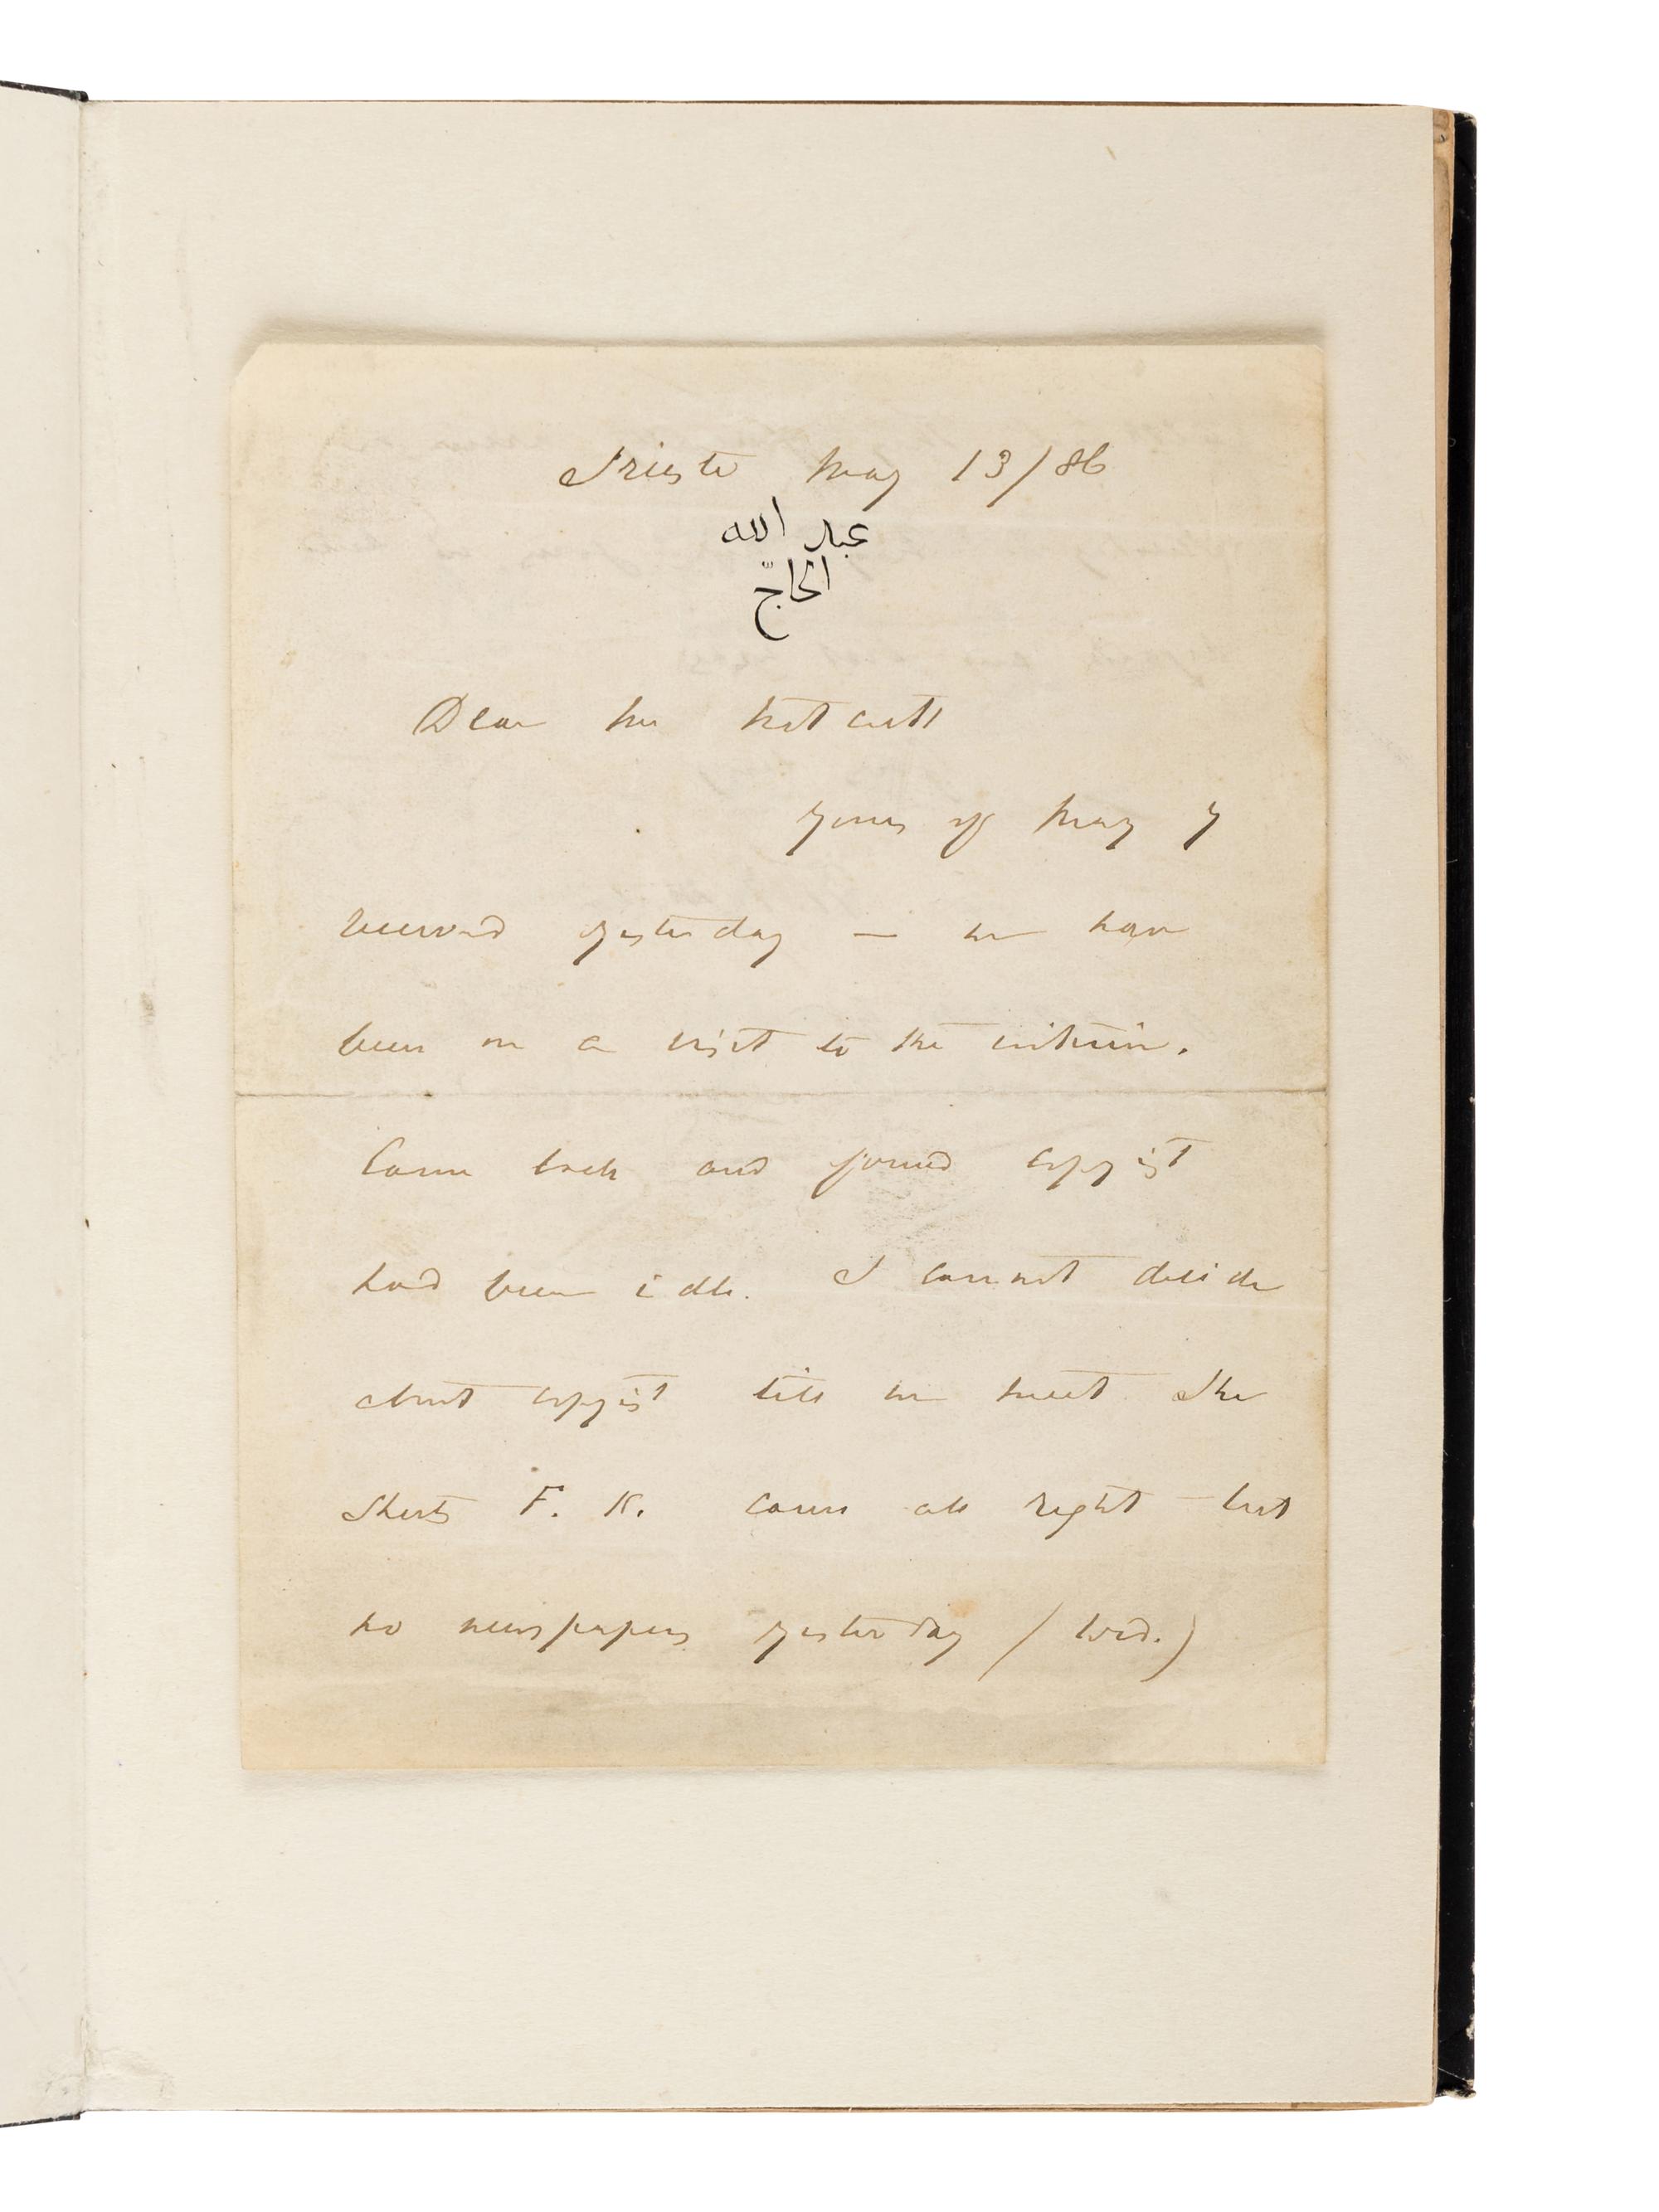 Trieste May 13/86
عبد الله
الحاجّ
Dear Mr Notcutt
Yours of May 7
received yesterday — we have
been on a visit to the interior.
Came back and found copyist
had been idle. I cannot decide
about copyist till we meet. The
Sheets F. K. came all right but
no newspapers yesterday (Wed.)